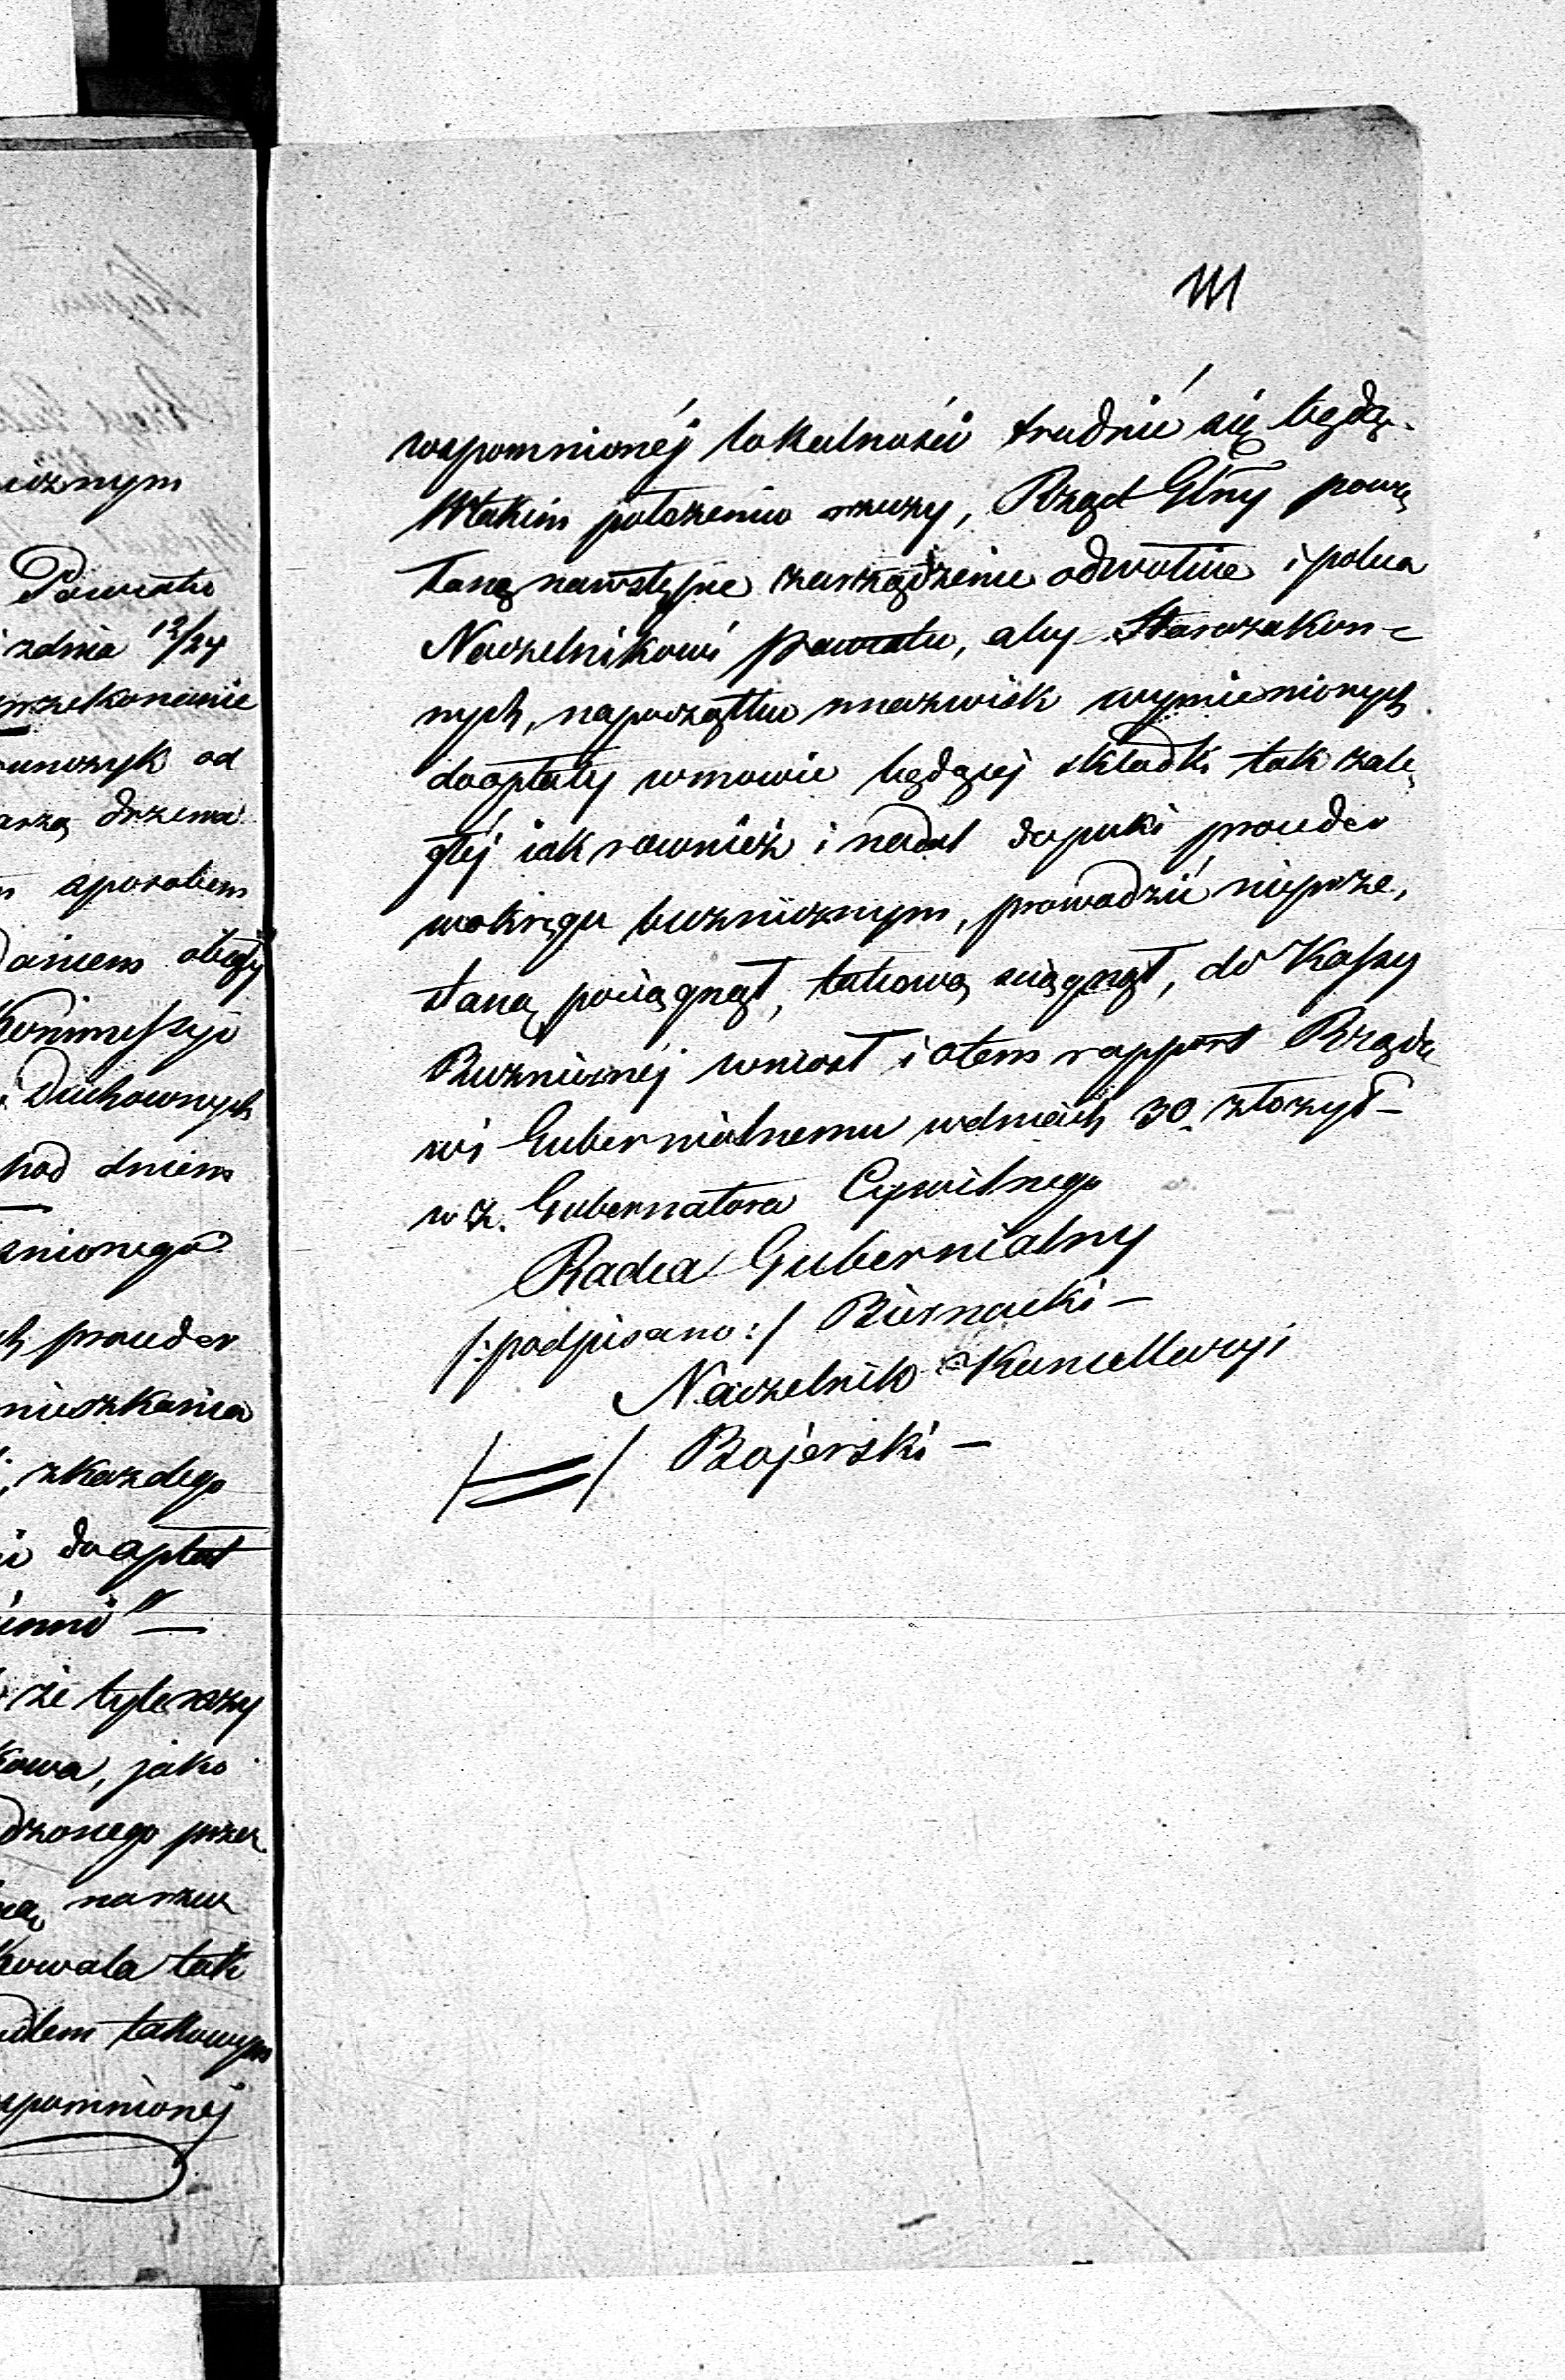 icznym
Powiatu
zdnia 12/24
przekonanie
unczyk od
arzą drzema
sposobem
daniem obięty
Kommissyi
i Duchownych
pod dniem
nionego
h proceder
mieszkania
zkazdego
do opłat
inni"—
że tylerazy
kowa, jako
dzonego przez
na rzecz
kowala tak
takowym
spomnionej
111
wspomnionéj lokalności trudnić się będą.
Wtakim położeniu rzeczy, Rząd Glny powię
taną nawstępie zarządzenie odwołuie i poleca
Naczelnikowi Powiatu, aby Starozakon-
nych, napoczątku nnazwisk wymienionych
doopłaty wmowie będącej składki tak zale,
głéj iak rownież i nadal dopuki proceder
wokręgu buznicznym, prowadzić nieprze,
staną pociągnął, takową sciągnął, do Kassy
Buznicznéj wniosł i otem rapport Rządo
wi Gubernialnemu wdniach 30. złożył—
w z. Gubernatora Cywilnego
Radca Gubernialny
/:podpisano:/ Biernacki—
Naczelnik Kancellaryi
/=/ Bojerski—